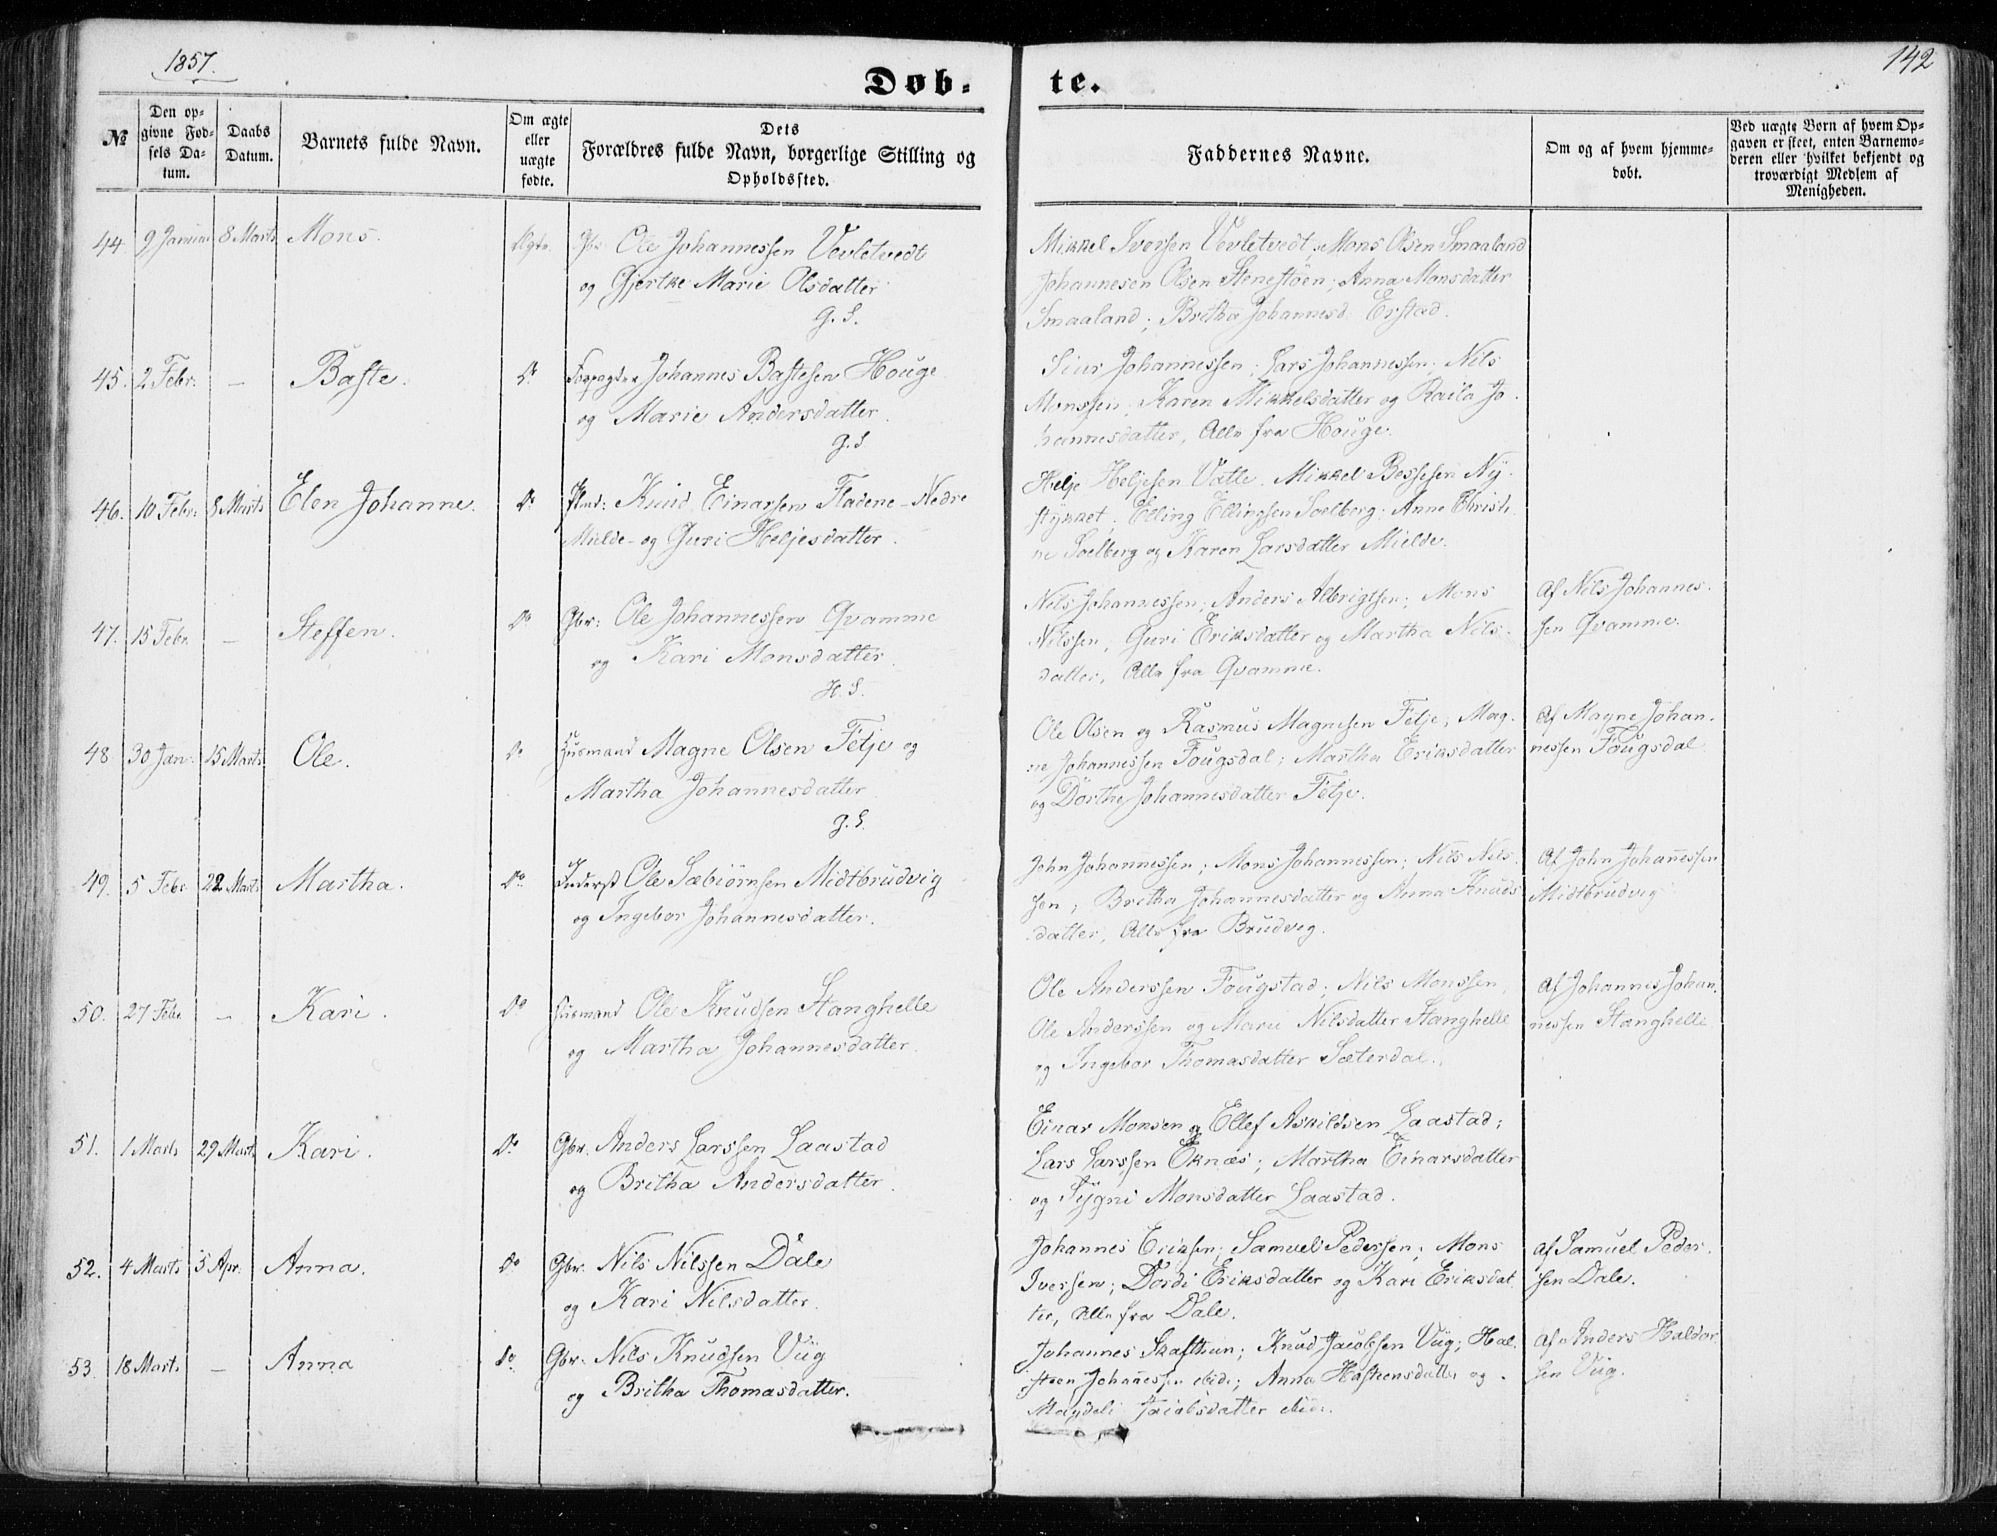 1857.
142
Døb-
te.
№
Den op-
givne Fød-
sels Da-
tum.
Daabs
Datum.
Barnets fulde Navn.
Om ægte
eller
uægte
fødte.
Dets
Forældres fulde Navn, borgerlige Stilling og
Opholdssted.
Faddernes Navne.
Om og af hvem hjemme-
døbt.
Ved uægte Børn af hvem Op-
gaven er skeet, enten Barnemo-
deren eller hvilket bekjendt og
troværdigt Medlem af
Menigheden.
44. 9 Januar 8 Marts Mons. Ægte. Ole Johannessen Vevletvedt
og Gjertke Marie Olsdatter
G. S.
Mikkel Iversen Vevletvedt; Mons Olsen Smaaland
Johannesen Olsen Stenestøen; Anna Monsdatter
Smaaland; Britha Johannesd. Erstad.
45. 2 Febr: — Baste. Do Johannes Bastesen Houge
og Marie Andersdatter.
G. S
Siur Johannessen; Lars Johannessen; Nils
Monssen; Karen Mikkelsdatter og Raila Jo-
hannesdatter, Alle fra Houge.
46. 10 Febr: 8 Marts Elen Johanne. Do Plmd: Knud Einarsen Fladene - Nedre
Mielde - og Guri Heljesdatter.
Helje Heljesen Vatle. Mikkel Bessesen Ny-
stykket; Elling Ellingsen Soelberg; Anne Christi-
ne Soelberg og Karen Larsdatter Mielde.
47. 15 Febr. — Steffen. Do Gbr: Ole Johannessen Qvamme
og Kari Monsdatter.
H. S.
Nils Johannessen; Anders Albrigtsen; Mons
Nilssen, Guri Eriksdatter og Martha Nils-
datter, Alle fra Qvamme.
Af Nils Johannes-
sen Qvamme.
48 30 Jan: 15 Marts Ole. Do Husmand Magne Olsen Fetje og
Martha Johannesdatter
G. S.
Ole Olsen og Rasmus Magnesen Fetje; Mag-
ne Johannessen Fougsdal; Martha Eriksdatter
og Dorthe Johannesdatter Fetje.
Af Magne Johan-
nessen Fougsdal
49. 5 Febr 22 Marts Martha. Do Inderst Ole Sæbiörnsen Midtbrudvig
og Ingebor Johannesdatter.
John Johannessen; Mons Johannessen; Nils Nils-
sen; Britha Johannesdatter og Anna Knuds-
datter, Alle fra Brudvig.
Af John Johanessen
Midtbrudvig
50. 27 Febr — Kari. Do Husmand Ole Knudsen Stanghelle
og Martha Johannesdatter.
Ole Anderssen Fougstad; Nils Monssen,
Ole Anderssen og Marie Nilsdatter Stanghelle
og Ingebor Thomasdatter Sæterdal.
Af Johannes Johan-
nessen Stanghelle
51. 1 Marts 29 Marts Kari. Do Gbr. Anders Larssen Laastad
og Britha Andersdatter.
Einar Monsen og Ellef Askildsen Laastad;
Lars Larssen Eknæs; Martha Einarsdatter
og Sygni Monsdatter Laastad.
52. 4 Marts 5 Apr: Anna. Do Gbr. Nils Nilssen Dale
og Kari Nilsdatter.
Johannes Eriksen; Samuel Pederssen; Mons
Iverssen; Dordi Eriksdatter og Kari Eriksdat-
ter, Alle fra Dale.
af Samuel Peder-
sen Dale.
53. 18 Marts — Anna Do Gbr. Nils Knudsen Viig
og Britha Thomasdatter.
Johannes Skafthun; Knud Jacobssen Viig; Hal-
steen Johannessen ibid:; Anna Halsteensdatter og
Magdeli Jacobsdatter ibid:.
af Anders Haldor-
sen Viig.